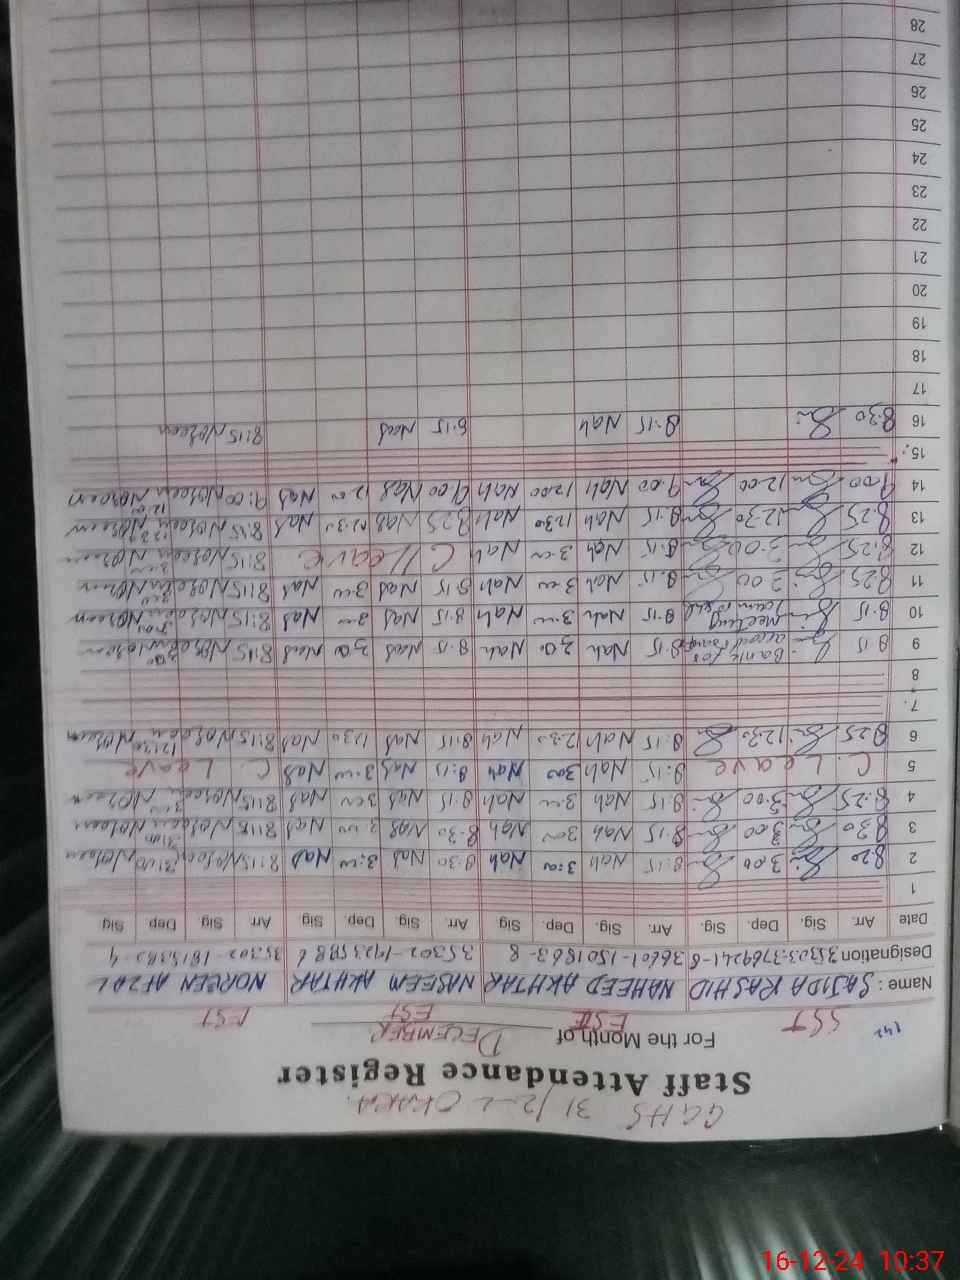 GGHS 31/2-L OKARA.
Staff Attendance Register
For the Month of DECEMBER
SST EST EST EST
Name : SAJIDA RASHID NAHEED AKHTAR NASEEM AKHTAR NOREEN AFZAL
Designation 35303-3769241-6 36601-1501863-8 35302-1923598 6 35302-1815382-4
Date Arr. Sig. Dep. Sig. Arr. Sig. Dep. Sig. Arr. Sig. Dep. Sig. Arr Sig. Dep Sig
1
2 8:20 3.00 8:15 Nah 3:00 Nah 8:30 Nas 3:00 Nas 8:15 Noreen 3:00 Noreen
3 8:30 3.00 8:15 Nah 300 Nah 8:30 Nas 3:00 Nas 8:15 Noreen 3:00 Noreen
4 8:25 3:00 8:15 Nah 3:00 Nah 8:15 Nas 300 Nas 8:15 Noreen 3:00 Noreen
5 C. Leave 8:15 Nah 300 Nah 8:15 Nas 3:00 Nas C. Leave
6 8:25 12:30 8:15 Nah 12:30 Nah 8:15 Nas 1230 Nas 8:15 Noreen 12:30 Noreen
7
8
9 8 15 Bank for 8:15 Nah 3,00 Nah 8:15 Nas 3,00 Nas 8:15 Noreen 3:00 Noreen
10 8:15 Meeting 8:15 Nah 3:00 Nah 8:15 Nas 3:00 Nas 8:15 Noreen Noreen
11 8:25 3:00 8:15 Nah 3:00 Nah 8:15 Nas 3:00 Nas 8:15 Noreen 3:00 Noreen
12 8:25 3:00 8:15 Nah 3:00 Nah C/Leave 8:15 Noreen 3:00 Noreen
13 8:25 12:30 8:15 Nah 1230 Nah 8:25 Nas 12:30 Nas 8:15 Noreen 12:30 Noreen
14 9:00 12:00 9.00 Nah 12:00 Nah 9:00 Nas 12:00 Nas 9:00 Noreen 12:00 Noreen
15
16 8:30 8:15 Nah 8:15 Nas 8:15 Noreen
17
18
19
20
21
22
23
24
25
26
27
28
16-12-24 10:37